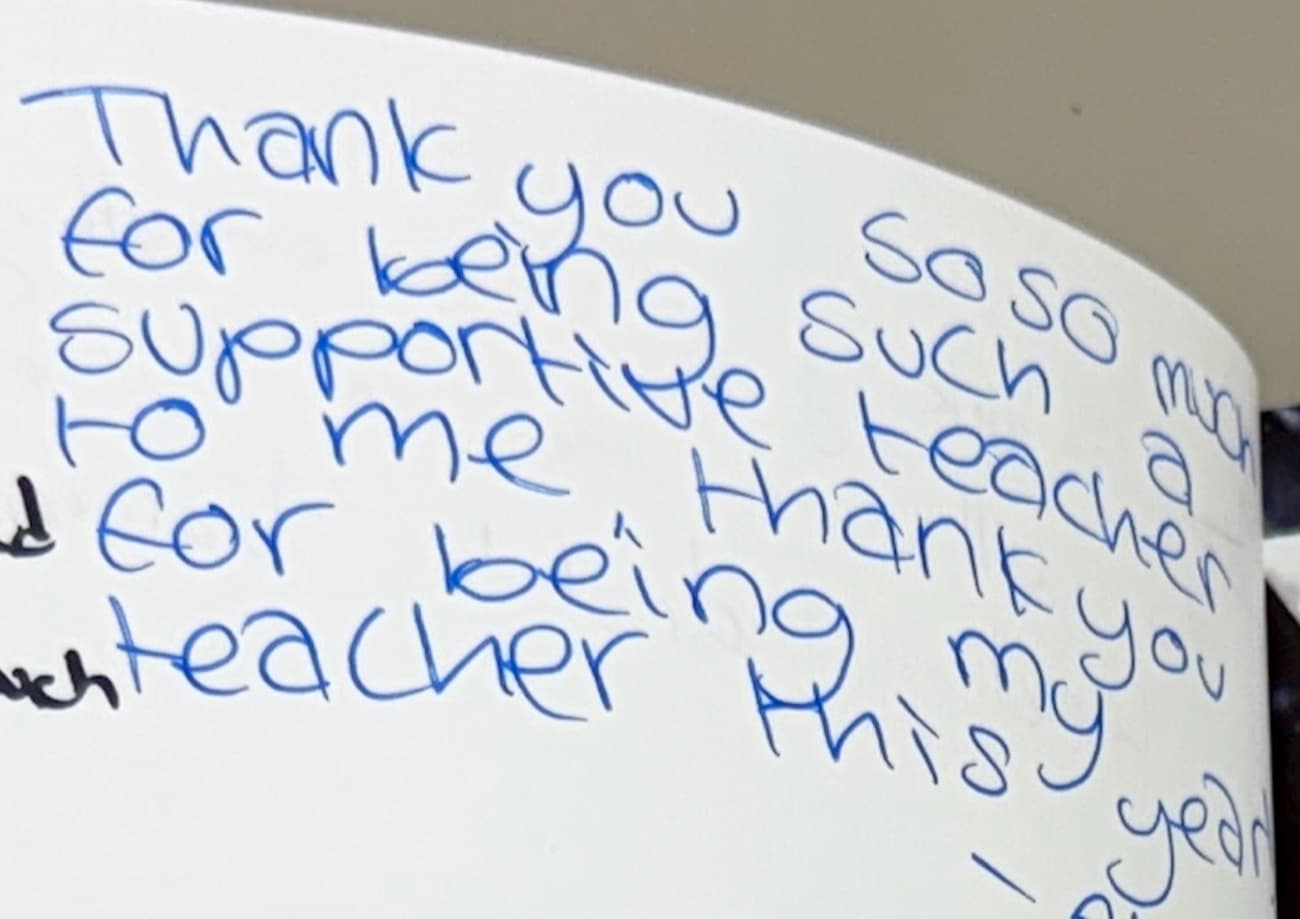 Thank you so so much
for being such a
supportive teacher
to me thank you
for being my
teacher this year